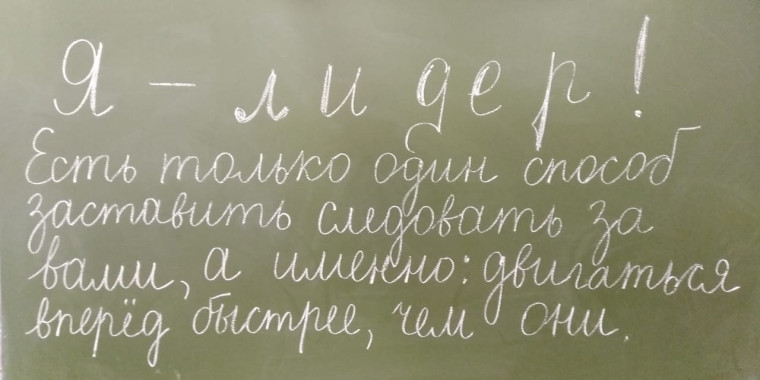 Я - лидер!
Есть только один способ
заставить следовать за
вами, а именно: двигаться
вперёд быстрее, чем они.